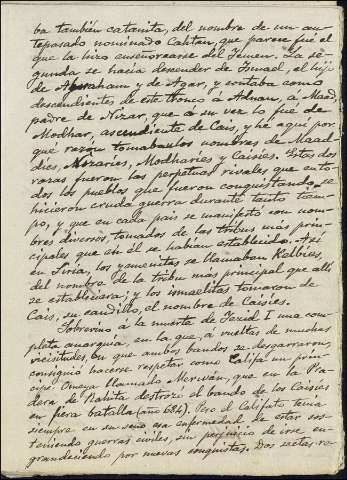 ba también catanita, del nombre de un an-
tepasado nominado Cahtan, que parece fué el
que la hizo enseñorearse del Yemen. La se-
gunda se hacia descender de Ismael, el hijo
de Abraham y de Agar, y contaba como
descendientes de este tronco á Adnan, á Maad,
padre de Nizar, que á su vez lo fué de
Modhar, ascendiente de Cais, y he aquí por
qué razón tomaban los nombres de Maad-
díes, Nizaríes, Modharíes y Caisíes. Estas dos
razas fueron las perpetuas rivales que en to-
dos los pueblos que fueron conquistando se
hicieron cruda guerra durante tanto tiem-
po, y que en cada país se manifestó con nom-
bres diversos, tomados de las tribus más prin-
cipales que en él se habían establecido. Así
en Siria, los yemenitas se llamaban Kelbíes,
del nombre de la tribu más principal que allí
se estableciera; y los ismaelitas tomaron de
Cais, su caudillo, el nombre de Caisíes.
Sobrevino á la muerte de Yecid I una com-
pleta anarquía, en la que, á vueltas de muchas
vicisitudes, en que ambos bandos se desgarraron,
consiguió hacerse respetar como Califa un prín-
cipe Omeya llamado Merwán, que en la Pra-
dera de Rahita destrozó el bando de los Caisíes
en fiera batalla (año 684). Pero el Califato tenía
siempre en su seno esa enfermedad de estar sos-
teniendo guerras civiles, sin perjuicio de irse en-
grandeciendo por nuevas conquistas. Dos sectas re-